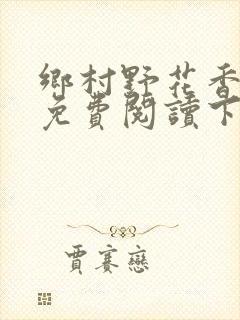 鄉村野花香
免費閱讀下
賈賽戀